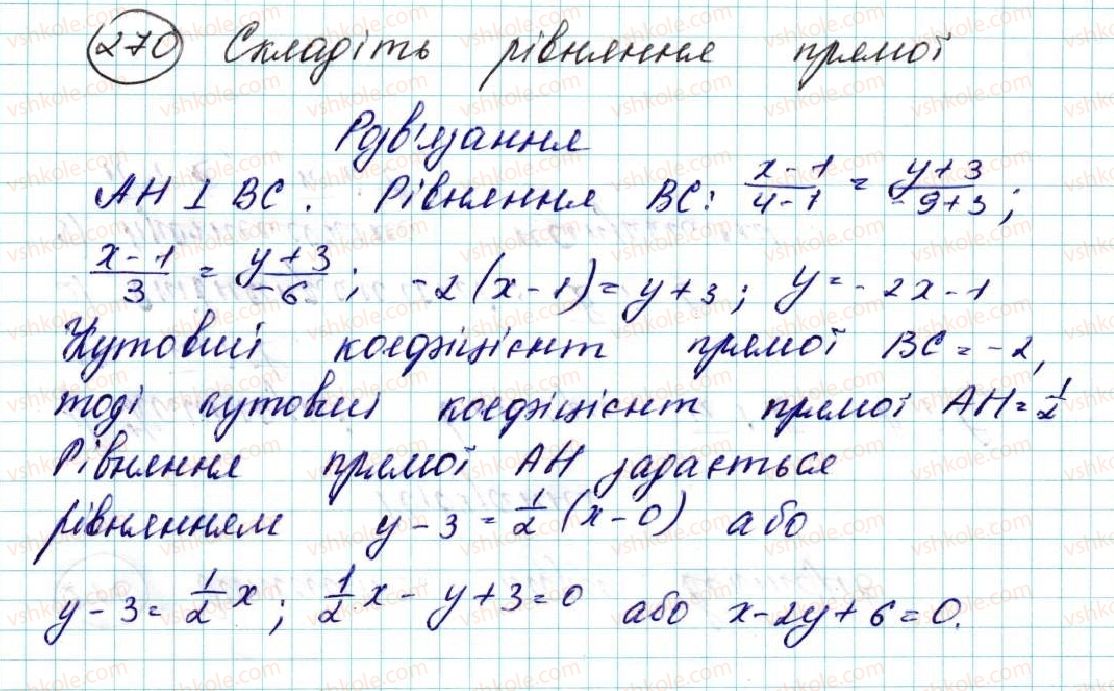 270 Складіть рівняння прямої
Розв'язання
AH ⊥ BC. Рівняння BC: (x-1)/(4-1) = (y+3)/(-9+3);
(x-1)/3 = (y+3)/(-6); -2(x-1)=y+3; y=-2x-1
Кутовий коефіцієнт прямої BC=-2,
тоді кутовий коефіцієнт прямої AH=1/2
Рівняння прямої AH задається
рівнянням y-3=1/2(x-0) або
y-3=1/2x; 1/2x-y+3=0 або x-2y+6=0.
vshkole.com